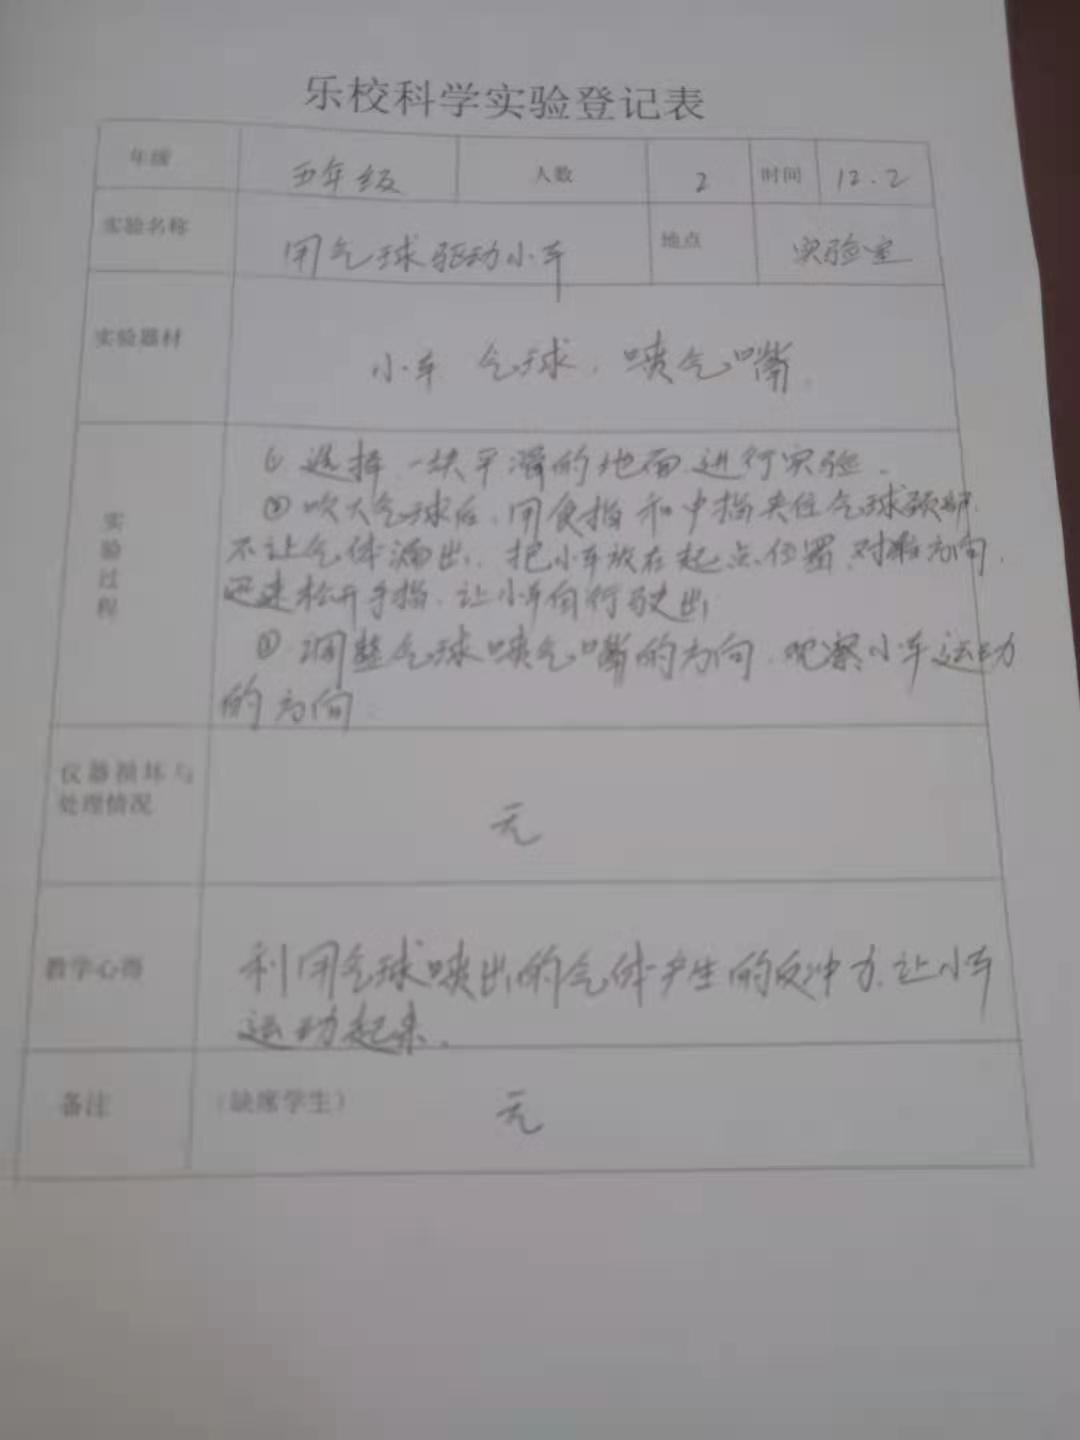 乐校科学实验登记表
年级 五年级 人数 2 时间 12.2
实验名称 用气球驱动小车 地点 实验室
实验器材 小车 气球、喷气嘴
实验过程
① 选择一块平滑的地面进行实验.
② 吹大气球后,用食指和中指夹住气球颈部,
不让气体漏出,把小车放在起点位置,对准方向,
迅速松开手指,让小车自行驶出
③ 调整气球喷气嘴的方向,观察小车运动
的方向
仪器损坏与
处理情况 无
教学心得 利用气球喷出的气体产生的反冲力,让小车
运动起来.
备注 (缺席学生) 无